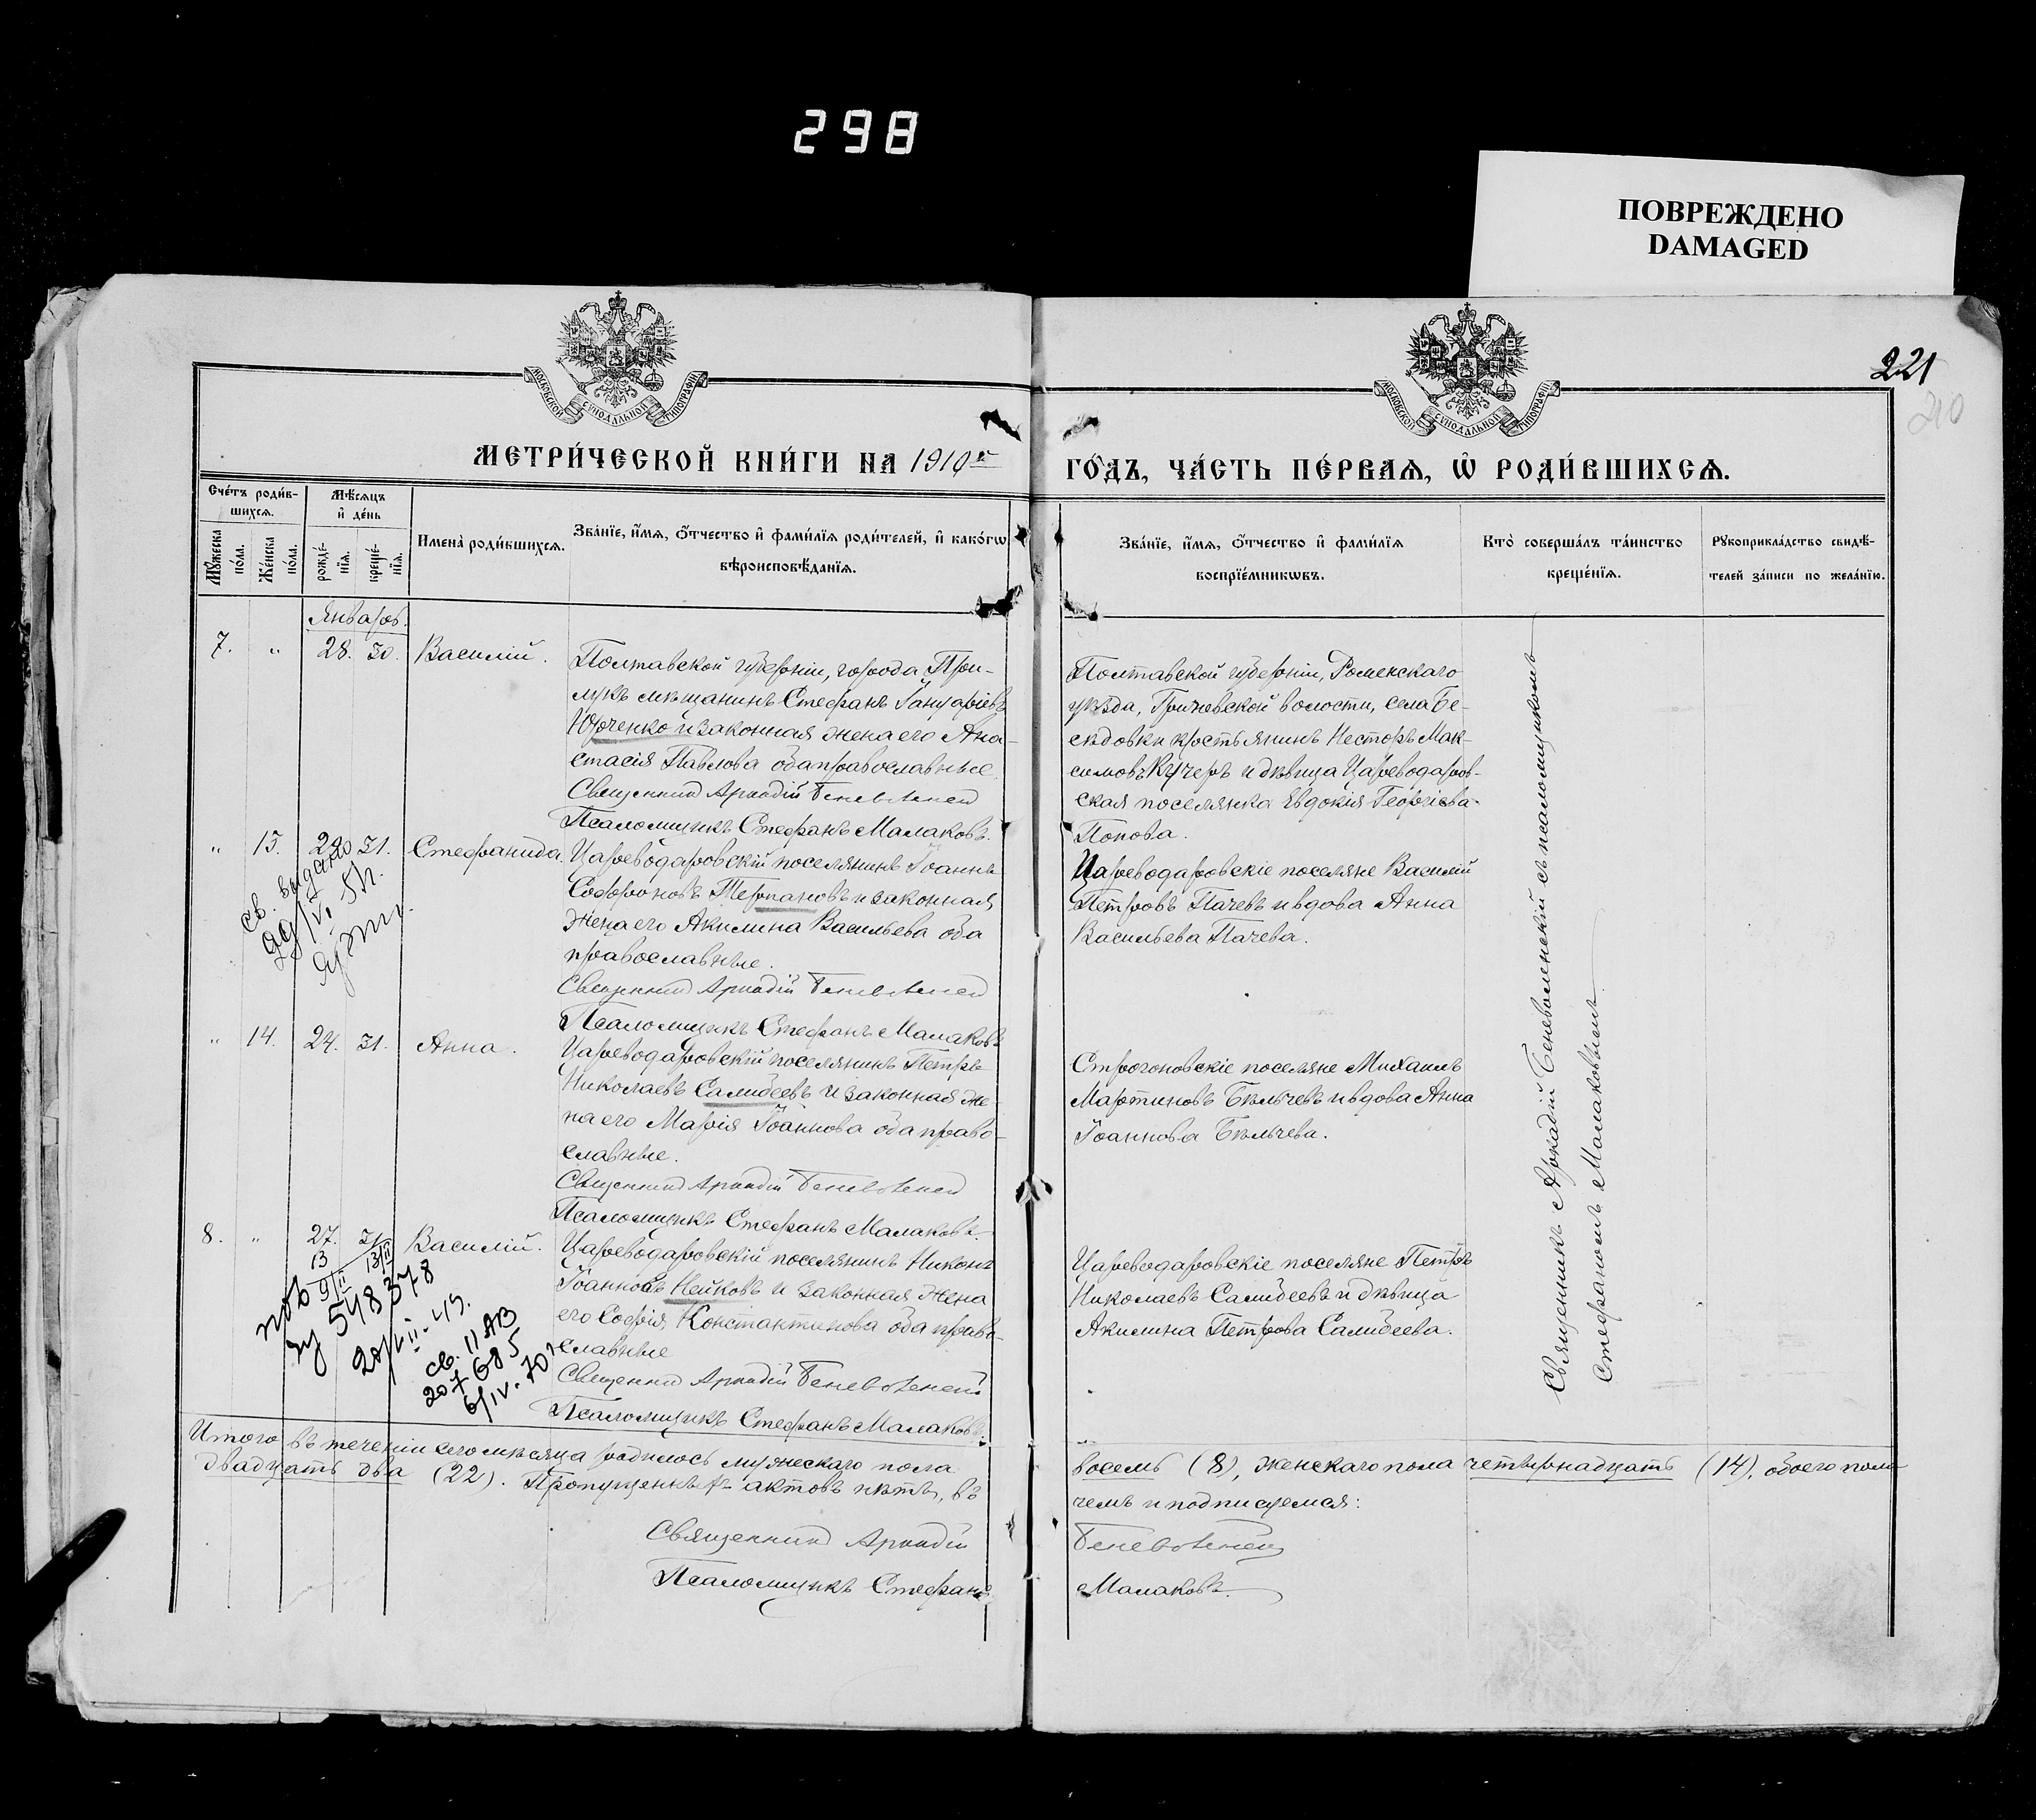 298
ПОВРЕЖДЕНО
DAMAGED
221
210
МОСКОВСКОЙ СѴНОДАЛЬНОЙ ТИПОГРАФІИ
МОСКОВСКОЙ СѴНОДАЛЬНОЙ ТИПОГРАФІИ
МЕТРИ́ЧЕСКОЙ КНИ́ГИ НА 1910й
ГО́ДЪ, ЧА́СТЬ ПЕ́РВАѦ, Ѡ҆ РОДИ́ВШИХСѦ.
Сче́тъ роди́в-
шихсѧ.
Мꙋ́жеска по́ла.
Же́нска по́ла.
Мѣ́сѧцъ
и҆ де́нь
рожде́-
нїѧ.
креще́-
нїѧ.
Имена̀ роди́вшихсѧ.
Зва́нїе, и҆́мѧ, ѻ҆́тчество и҆ фами́лїѧ роди́телей, и҆ како́гѡ
вѣроисповѣ́данїѧ.
Зва́нїе, и҆́мѧ, ѻ҆́тчество и҆ фами́лїѧ
воспрїе́мникѡвъ.
Кто̀ соверша́лъ та́инство
креще́нїѧ.
Рꙋкоприкла́дство свидѣ́-
телей за́писи по жела́нїю.
Январь.
7. " 28. 30. Василій.
Полтавской губерніи, города При-
лукъ мѣщанинъ Стефанъ Іануаріевъ
Юрченко и законная жена его Ана-
стасія Павлова оба православные.
Священникъ Аркадій Беневоленскій
Псаломщикъ Стефанъ Малаковъ.
Полтавской губерніи, Роменскаго
уѣзда, Гричевской волости, села Бе-
сѣдовки крестьянинъ Несторъ Мак-
симовъ Кучеръ и дѣвица Цареводаров-
ская поселянка Евдокія Георгіева
Попова.
" 13. 22. 31. Стефанида.
Цареводаровскій поселянинъ Іоаннъ
Софроновъ Терпановъ и законная
жена его Акилина Васильева оба
православные.
Священникъ Аркадій Беневоленскій
Псаломщикъ Стефанъ Малаковъ
Цареводаровскіе поселяне Василій
Петровъ Пачевъ и вдова Анна
Васильева Пачева.
св. выдано
29/IV. 51г.
" 14. 24. 31. Анна.
Цареводаровскій поселянинъ Петръ
Николаевъ Салибеевъ и законная же-
на его Марія Іоаннова оба право-
славные.
Священникъ Аркадій Беневоленскій
Псаломщикъ Стефанъ Малаковъ.
Строгоновскіе поселяне Михаилъ
Мартиновъ Бѣльчевъ и вдова Анна
Іоаннова Бѣльчева.
8. " 27. 31. Василій.
Цареводаровскій поселянинъ Никонъ
Іоанновъ Нейковъ и законная жена
его Софія Константинова оба право-
славные
Священникъ Аркадій Беневоленскій
Псаломщикъ Стефанъ Малаковъ.
Цареводаровскіе поселяне Петръ
Николаевъ Салибеевъ и дѣвица
Акилина Петрова Салибеева.
13 13/II
9/II
548378
св. II АВ
207685
6/IV. 70г
Священникъ Аркадій Беневоленскій съ псаломщикомъ
Стефаномъ Малаковымъ.
Итого въ теченіи сего мѣсяца родилось мужескаго пола восемь (8), женскаго пола четырнадцать (14), обоего пола
двадцать два (22). Пропущенныхъ актовъ нѣтъ, въ чемъ и подписуемся:
Священникъ Аркадій Беневоленскій
Псаломщикъ Стефанъ Малаковъ.